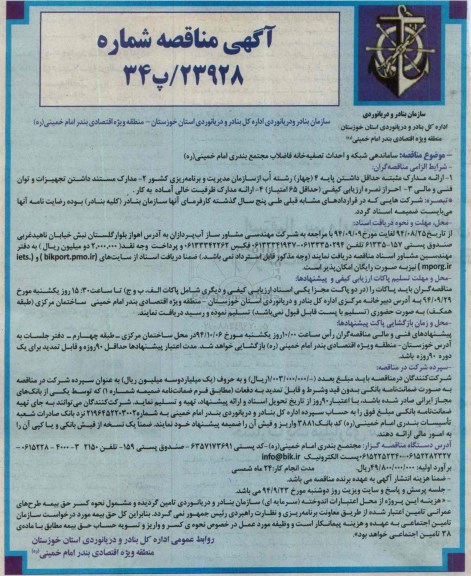 آگهی مناقصه شماره
۲۳۹۲۸/پ۳۴
سازمان بنادر و دریانوردی
اداره کل بنادر و دریانوردی استان خوزستان
منطقه ویژه اقتصادی بندر امام خمینی(ره)
سازمان بنادر ودریانوردی اداره کل بنادر و دریانوردی استان خوزستان - منطقه ویژه اقتصادی بندر امام خمینی(ره)
- موضوع مناقصه: ساماندهی شبکه و احداث تصفیه‌خانه فاضلاب مجتمع بندری امام خمینی(ره)
- شرایط الزامی مناقصه‌گران:
۱- ارائه مدارک مثبته حداقل داشتن پایه ۴ (چهار) رشته آب ازسازمان مدیریت و برنامه‌ریزی کشور ۲- مدارک مستند داشتن تجهیزات و توان
فنی و مالی ۳- احراز نمره ارزیابی کیفی (حداقل ۶۵ امتیاز) ۴- ارائه مدارک ظرفیت خالی آماده به کار.
*تبصره: شرکت هایی که در قراردادهای مشابه قبلی طی پنج سال گذشته کارفرمای آنها سازمان بنادر (کلیه بنادر) بوده رضایت نامه آنها
می‌بایست ضمیمه اسناد گردد.
-محل، مهلت و نحوه دریافت اسناد:
از تاریخ ۹۴/۰۸/۲۵ لغایت مورخ ۹۴/۰۹/۰۹ با مراجعه به شرکت مهندسی مشاور ساز آب‌پردازان به آدرس اهواز بلوار گلستان نبش خیابان ناهیدغربی
صندوق پستی ۱۵۷-۶۱۳۳۵ تلفن ۰۶۱۳۳۳۵۰۲۹۴ فکس ۰۶۱۳۳۳۴۲۲۶۲ و پرداخت وجه نقد (۲,۰۰۰,۰۰۰ دو میلیون ریال) به دفتر
مهندسین مشاور اسناد مناقصه دریافت نمایند (وجه مذکور قابل استرداد نمی باشد.) ضمنا دریافت اسناد از سایت‌های (bikport.pmo.ir) و (iets.
mporg.ir) نیز به صورت رایگان امکان‌پذیر است.
- محل و مهلت تسلیم پاکات ارزیابی کیفی و پیشنهادها:
مناقصه‌گران باید پاکات را (در دو پاکت مجزا یکی اسناد ارزیابی کیفی و دیگری شامل پاکات الف، ب و ج) تا ساعت ۱۵:۳۰ روز یکشنبه مورخ
۹۴/۰۹/۲۹ به آدرس دبیرخانه مرکزی اداره کل بنادر و دریانوردی استان خوزستان - منطقه ویژه اقتصادی بندر امام خمینی ساختمان مرکزی (طبقه
همکف) به صورت حضوری (تسلیم با پست قابل قبول نمی‌باشد)، تسلیم نموده و رسید دریافت نمایند.
- محل و زمان بازگشایی پاکت پیشنهادها:
پیشنهادهای فنی و مالی مناقصه‌گران رأس ساعت ۱۰/۰۰ روز یکشنبه مورخ ۹۴/۱۰/۰۶ در محل ساختمان مرکزی - طبقه چهارم - دفتر جلسات به
آدرس خوزستان - منطقه ویژه اقتصادی بندر امام خمینی (ره) بازگشایی خواهد شد. مدت اعتبار پیشنهادها حداقل ۹۰ روز و قابل تمدید برای یک
دوره ۹۰ روزه باشد.
-سپرده شرکت در مناقصه:
شرکت‌کنندگان در مناقصه باید مبلغ به عدد (/۱/۰۰۳/۰۰۰/۰۰۰-ریال) و به حروف (یک میلیاردوسه میلیون ریال) به عنوان سپرده شرکت در مناقصه
به صورت ضمانت‌نامه بانکی بدون قید وشرط و قابل تمدید به دفعات (مطابق فرم ضمانت‌نامه ضمیمه شماره ۱) که توسط یکی از بانک‌های
مجاز ایرانی صادر شده باشد، با اعتبار ۹۰ روز از تاریخ تحویل اسناد و ارائه پیشنهاد، تهیه و تسلیم نمایند. شرکت‌کنندگان می‌توانند به جای تهیه
ضمانت‌نامه بانکی مبلغ فوق را به حساب سپرده اداره کل بنادر و دریانوردی بندر امام خمینی به شماره ۲۱۹۶۴۵۲۲۰۳۰۰۲ نزد بانک صادرات شعبه
تأسیسات بندری امام خمینی(ره) کد بانک ۲۸۸۱ واریز و فیش آن را ضمیمه پیشنهاد خود نمایند. ضمنا یک نسخه از فیش بانکی و یا کپی آن را
به امور مالی ارائه دهند.
آدرس دستگاه مناقصه گزار: مجتمع بندری امام خمینی(ره) - کد پستی ۶۳۵۶۱۷۳۶۹۱ - صندوق پستی ۱۵۹- تلفن ۳۱۵۰
پست الکترونیک: info@bik.ir
برآورد اولیه: ۴۹/۸۰۰/۰۰۰/۰۰۰ریال. مدت انجام کار: ۲۴ ماه شمسی
- ضمنا هزینه انتشار آگهی به عهده برنده مناقصه می باشد.
- جلسه پرسش و پاسخ و سایت ویزیت روز دوشنبه مورخ ۹۴/۹/۲۳ می باشد.
- *هزینه این پروژه از محل اعتبارات اندوخته (سرمایه ای) سازمان بنادر و دریانوردی تامین گردیده و مشمول نحوه کسر حق بیمه طرح‌های
عمرانی تامین اعتبار شده از طریق معاونت برنامه‌ریزی و نظارت راهبردی رئیس جمهور نمی گردد، بنابراین کل حق بیمه مورد درخواست سازمان
تامین اجتماعی به عهده و هزینه پیمانکار است و وظیفه مورد عمل در خصوص نحوه ی کسر و واریز و تسویه حساب حق بیمه مطابق با ماده‌ی
۳۸ تامین اجتماعی خواهد بود».
روابط عمومی اداره کل بنادر و دریانوردی استان خوزستان
منطقه ویژه اقتصادی بندر امام خمینی (ره)